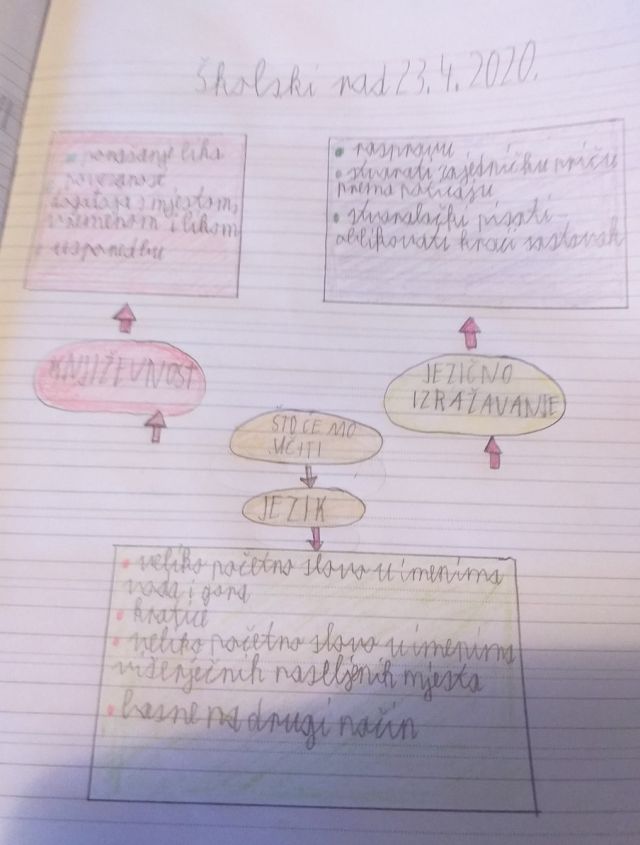 Školski rad 23.4.2020.
ponašanje lika
povezanost
događaja s mjestom,
vremenom i likom
usporedbu
raspravu
stvarati zajedničku priču
prema poticaju
stvaralački pisati
oblikovati kraći sastavak
KNJIŽEVNOST
JEZIČNO
IZRAŽAVANJE
ŠTO ĆEMO
UČITI
JEZIK
veliko početno slovo u imenima
voda i gora
kratice
veliko početno slovo u imenima
višerječnih naseljenih mjesta
basne na drugi način